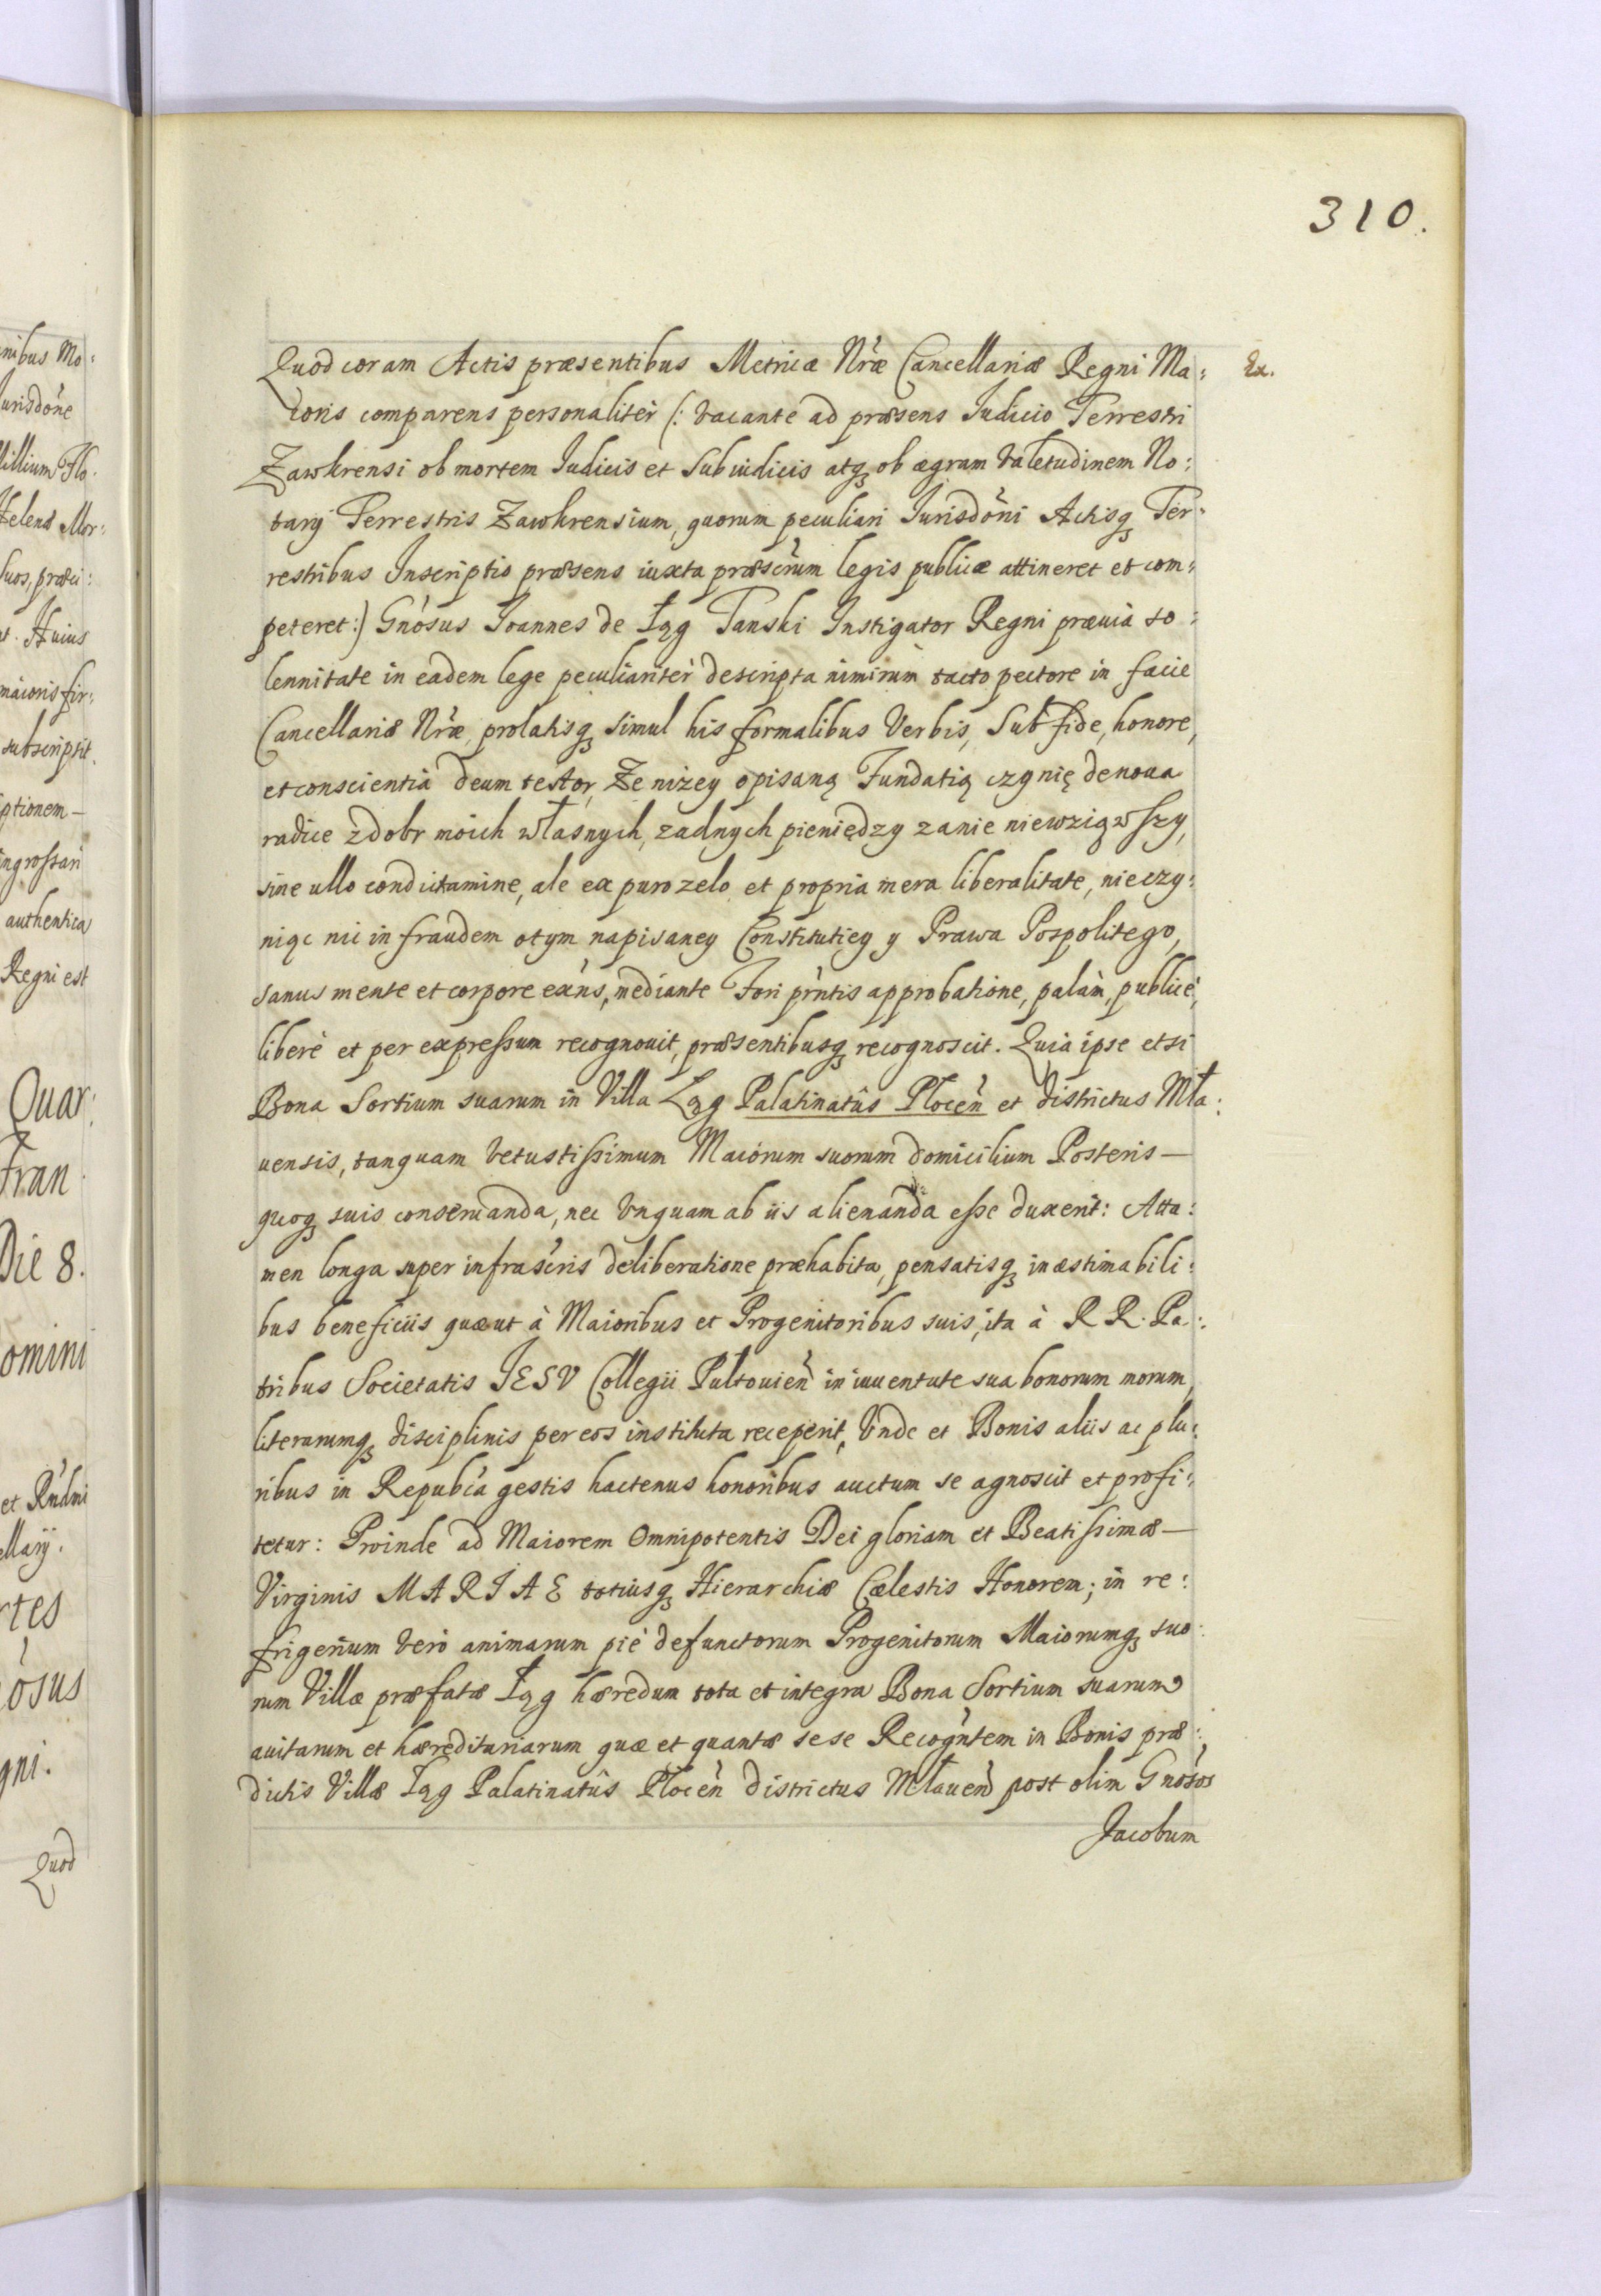 310.
Quod coram Actis præsentibus Metricæ Nræ Cancellariæ Regni Ma:
ioris comparens personaliter (: vacante ad præsens Iudicio Terrestri
Zawkrensi ob mortem Iudicis et Subiudicis atq; ob ægram valetudinem No:
tarÿ Terrestris Zawkrensium, quorum peculiari Iurisdóni Actisq; Ter:
restribus Inscriptio præsens iuxta præscrum legis publicæ attineret et com:
peteret:) Gnosus Joannes de Łąg Tanski Instigator Regni præuià so:
lennitate in eadem lege peculiariter descripta nimirùm tacto pectore in facie
Cancellariæ Nræ, prolatisq; simul his formalibus Verbis, Sub fide, honore,
et conscientia deum testor, Ze nizey opisaną Fundatią czynię de noua
radice z dobr moich własnych, zadnych pieniędzy zanie niewziąwszy,
sine ullo condictamine, ale ex puro zelo et propria mera liberalitate, nieczy:
niąc nic in fraudem otym napisaney Constitutiey y Prawa Pospolitego,
sanus mente et corpore exńs, mediante Fori pŕntis approbatione, palàm, publicè,
liberè et per expressum recognouit, præsentibusq; recognoscit. Quia ipse etsi
Bona Sortium suarum in Villa Łąg Palatinatûs Płoceń et districtus Mła:
uensis, tanquam vetustissimum Maiorum suorum domicilium Posteris —
quoq; suis conseruanda, nec vnquam ab iis alienanda esse duxerit: Atta:
men longa super infrascris deliberatione præhabita, pensatisq; inæstimabili:
bus beneficiis quæ ut à Maioribus et Progenitoribus suis, ita à R R. Pa:
tribus Societatis JESV Collegii Pultouień in iuuentute sua bonorum morum,
literarumq; disciplinis per eos instituta receperit, Vnde et Bonis aliis ac plu:
ribus in Repubca gestis hactenus honoribus auctum se agnoscit et profi:
tetur: Proinde ad Maiorem Omnipotentis Dei gloriam et Beatissimæ —
Virginis MARIAE totiusq; Hierarchiæ Cælestis Honorem; in re:
frigerium verò animarum piè defunctorum Progenitorum Maiorumq; suo:
rum Villæ præfatæ Łąg hæredum tota et integra Bona Sortium suarum
auitarum et hæreditariarum quæ et quantæ sese Recogńtem in Bonis præ:
dictis Villæ Łąg Palatinatûs Płoceń districtus Mławeń post olim Gnosos
Jacobum
Ex.
nibus Mo:
urisdóne
illium Flo.
Helenæ Mor:
suos, præci:
t. Huius
maioris fir:
subscripsit.
ptionem —
ingrossari
authentica
Regni est
Quar:
Fran
Die 8.
omini
et Rndni
ellarÿ.
rtes
osus
gni.
Quod